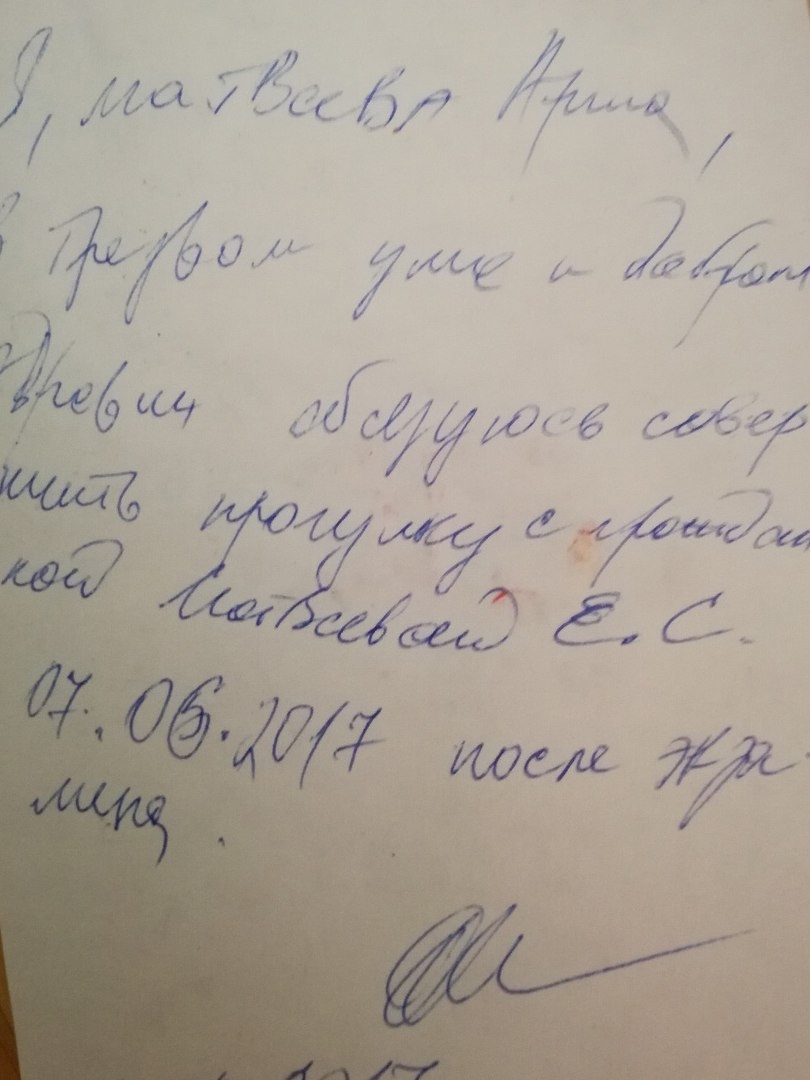 Я, Матвеева Арина,
в трезвом уме и добром
здравии обязуюсь совер
шить прогулку с граждан
кой Матвеевой Е.С.
07.06.2017 после экза-
мена.
2017